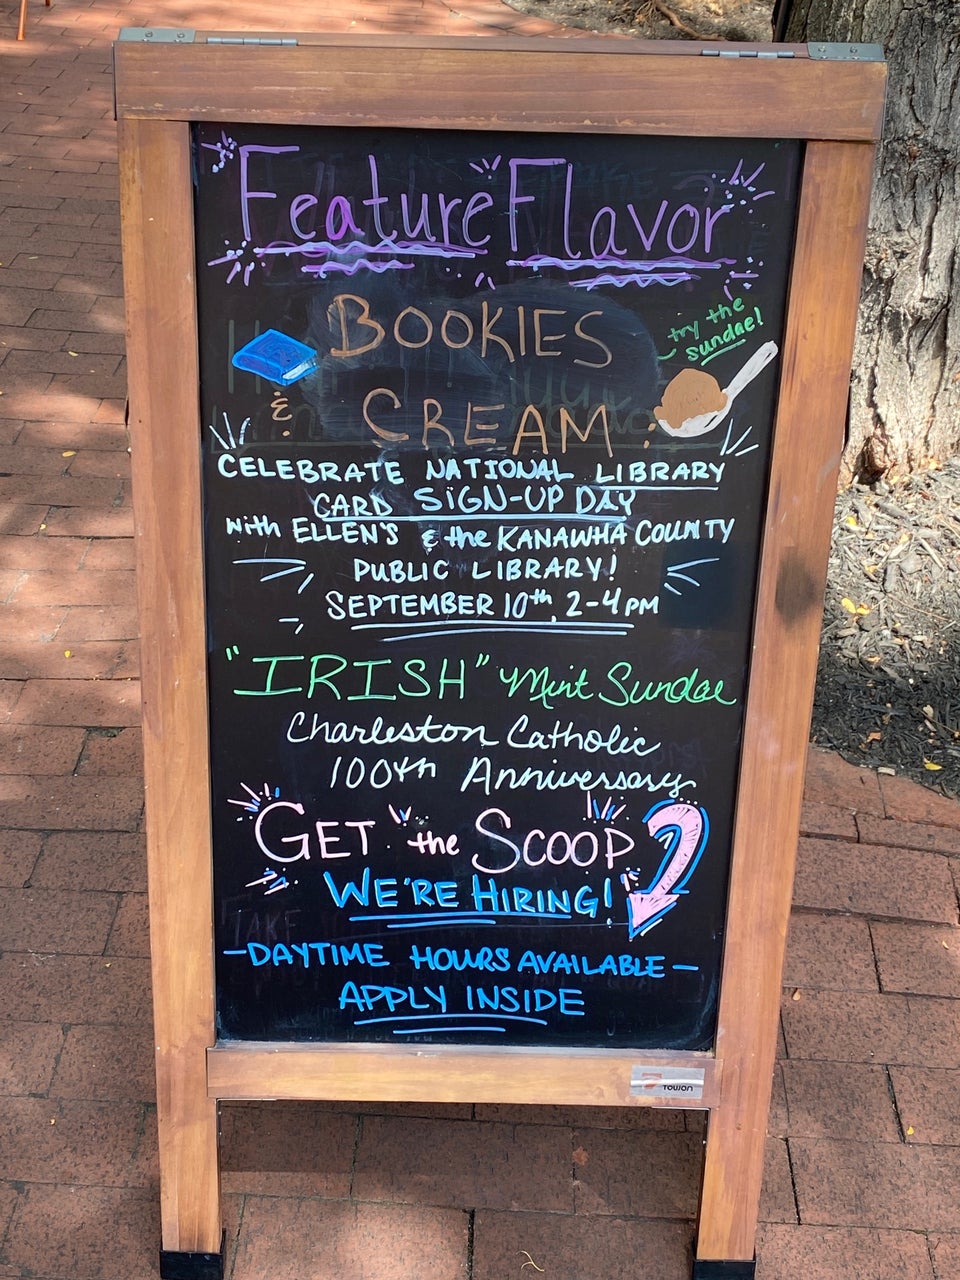 Feature Flavor
BOOKIES
& CREAM
try the
sundae!
CELEBRATE NATIONAL LIBRARY
CARD SIGN-UP DAY
with ELLEN'S & the KANAWHA COUNTY
PUBLIC LIBRARY!
SEPTEMBER 10th, 2-4 PM
"IRISH" Mint Sundae
Charleston Catholic
100th Anniversary
GET the SCOOP
WE'RE HIRING!
-DAYTIME HOURS AVAILABLE-
APPLY INSIDE